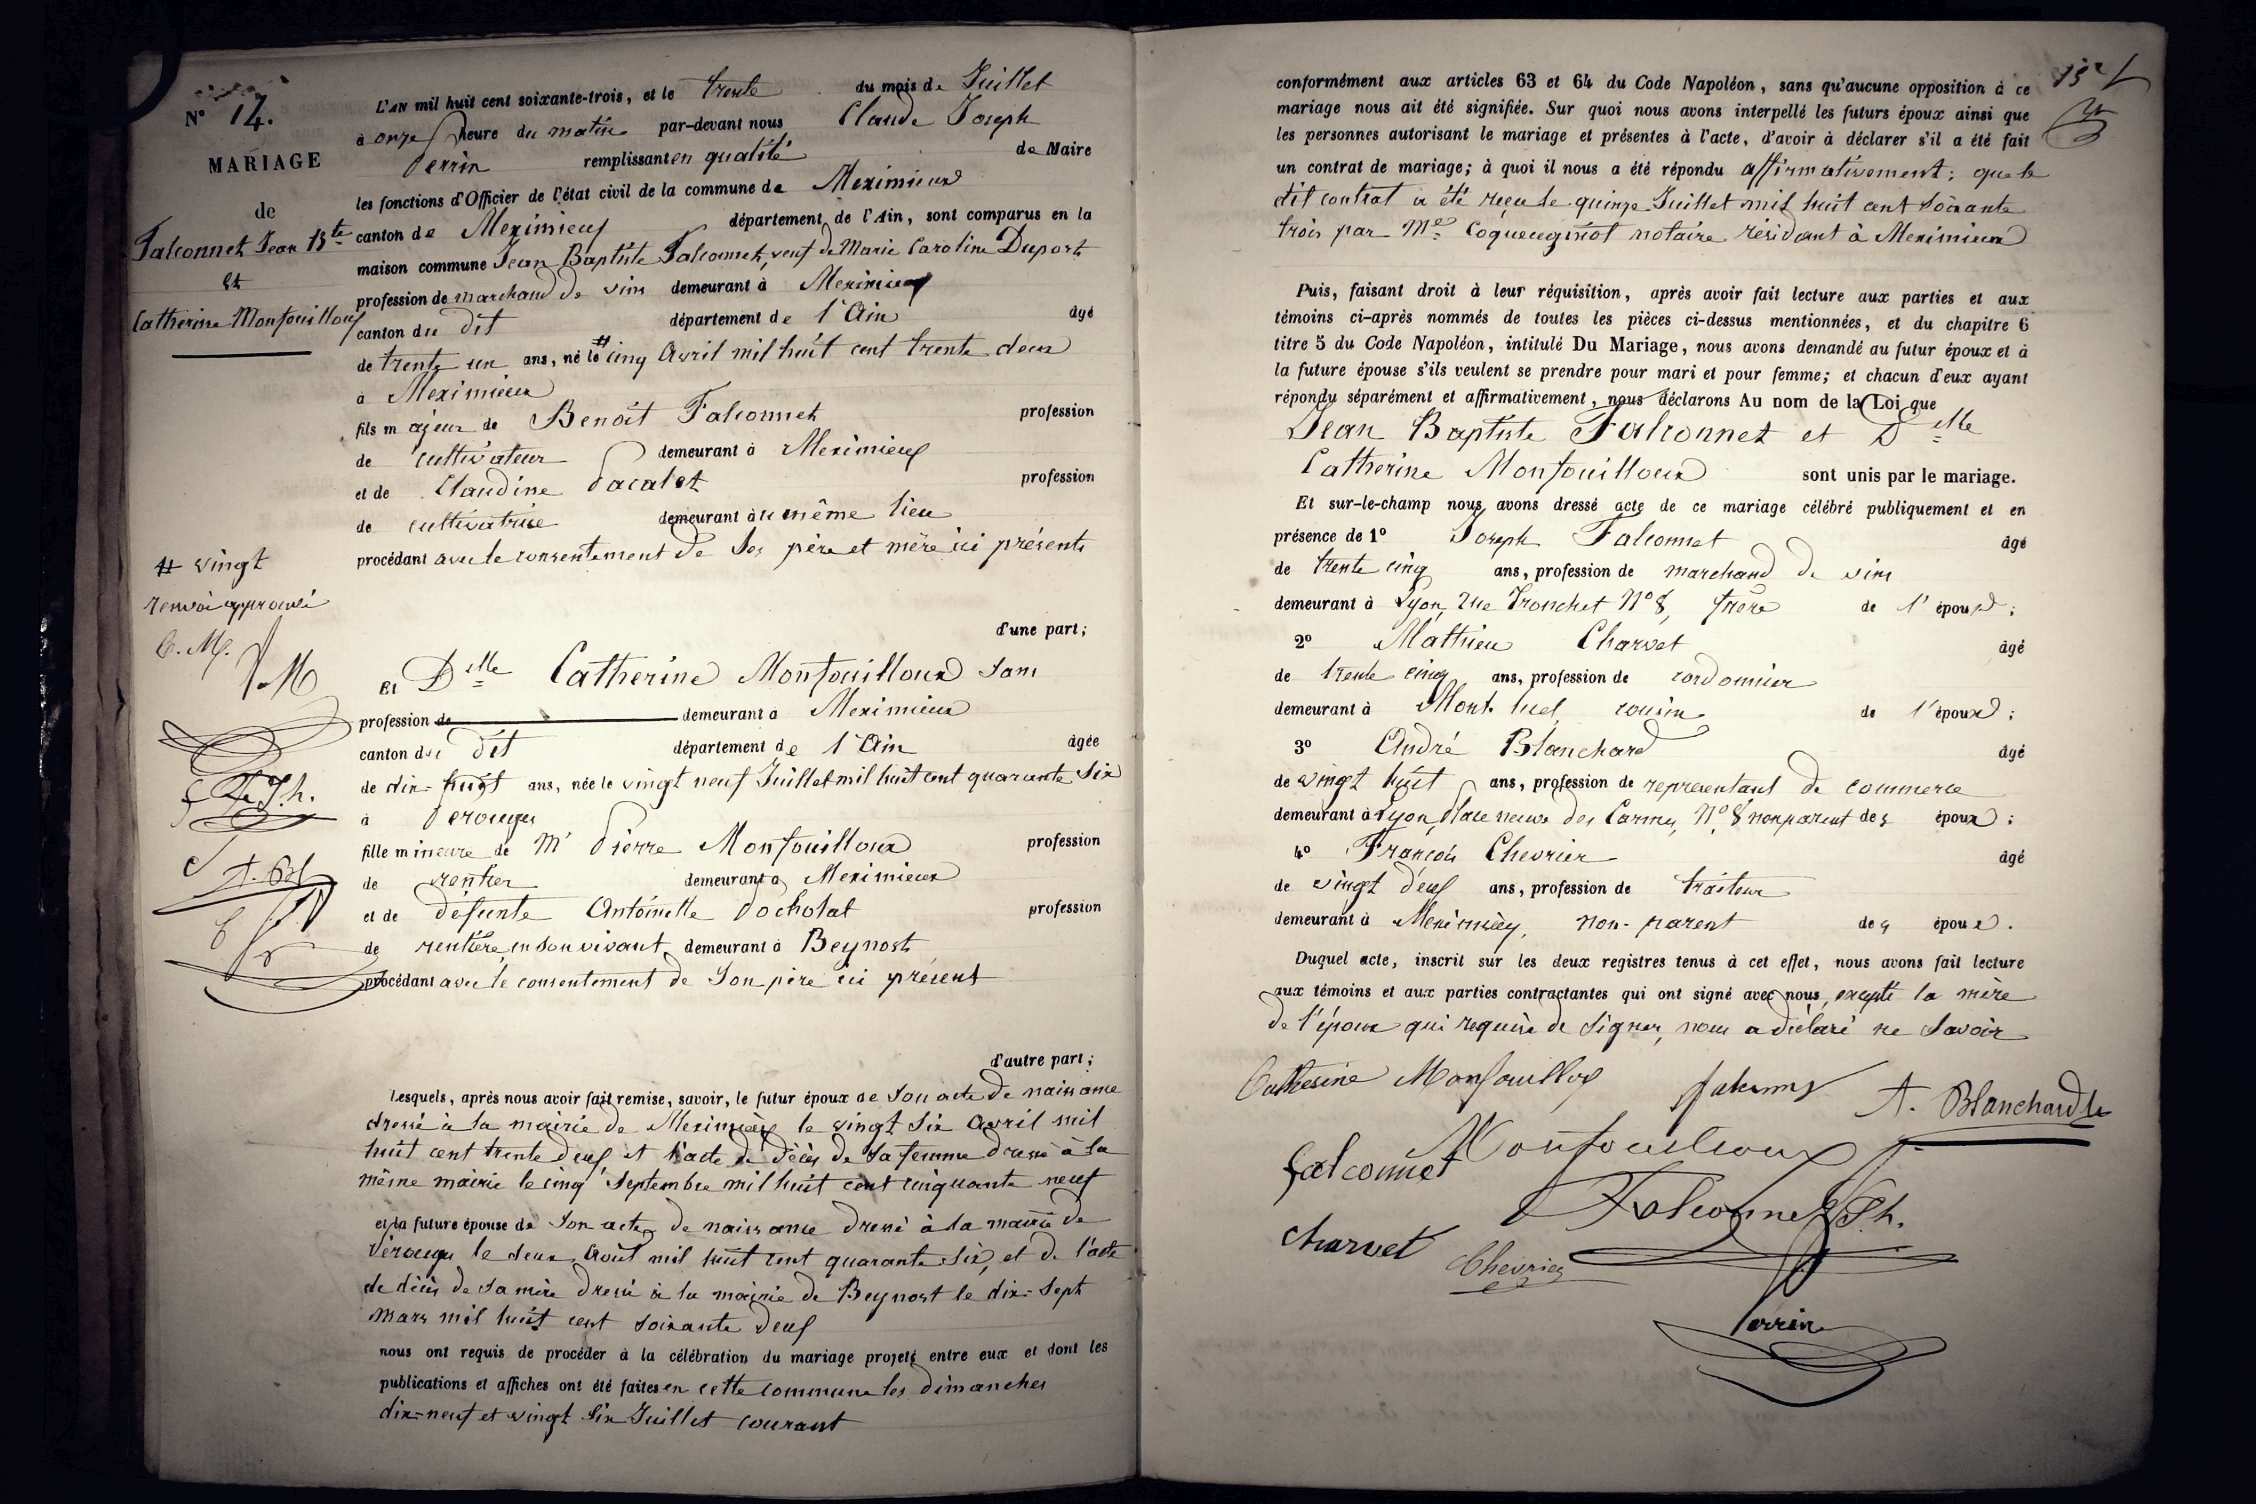 N° 14.
MARIAGE
de
Falconnet Jean Bte
et
Catherine Monfouilloux
# vingt
renvoi approuvé
C. M.
J. M
F Ph.
A. Bl
L'AN mil huit cent soixante-trois, et le trente du mois de Juillet
à onze heure du matin par-devant nous Claude Joseph
Perrin remplissant en qualité de Maire
les fonctions d'Officier de l'état civil de la commune de Meximieux
canton de Meximieux département de l'Ain, sont comparus en la
maison commune Jean Baptiste Falconnet, veuf de Marie Caroline Duport
profession de marchand de vins demeurant à Meximieux
canton du dit département de l'Ain âgé
de trente un ans, né le # cinq Avril mil huit cent trente deux
à Meximieux
fils majeur de Benoît Falconnet profession
de cultivateur demeurant à Meximieux
et de Claudine Pacalet profession
de cultivatrice demeurant au même lieu
procédant avec le consentement de ses père et mère ici présents
d'une part;
Et Dlle Catherine Monfouilloux sans
profession de demeurant à Meximieux
canton du dit département de l'Ain âgée
de dix-huit ans, née le vingt neuf Juillet mil huit cent quarante six
à Perouges
fille mineure de Mr Pierre Monfouilloux profession
de rentier demeurant à Meximieux
et de défunte Antoinette Pocholat profession
de rentière, en son vivant demeurant à Beynost
procédant avec le consentement de son père ici présent
d'autre part;
Lesquels, après nous avoir fait remise, savoir, le futur époux de son acte de naissance
dressé à la mairie de Meximieux le vingt six avril mil
huit cent trente deux et l'acte de décès de sa femme dressé à la
même mairie le cinq Septembre mil huit cent cinquante neuf
et la future épouse de son acte de naissance dressé à la mairie de
Pérouges le deux Août mil huit cent quarante six, et de l'acte
de décès de sa mère dressé à la mairie de Beynost le dix-sept
mars mil huit cent soixante deux
nous ont requis de procéder à la célébration du mariage projeté entre eux et dont les
publications et affiches ont été faites en cette commune les dimanches
dix-neuf et vingt six Juillet courant
conformément aux articles 63 et 64 du Code Napoléon, sans qu'aucune opposition à ce
mariage nous ait été signifiée. Sur quoi nous avons interpellé les futurs époux ainsi que
les personnes autorisant le mariage et présentes à l'acte, d'avoir à déclarer s'il a été fait
un contrat de mariage; à quoi il nous a été répondu affirmativement; que le
dit contrat a été reçu le quinze Juillet mil huit cent soixante
trois par Me Coqueugniot notaire résidant à Meximieux
Puis, faisant droit à leur réquisition, après avoir fait lecture aux parties et aux
témoins ci-après nommés de toutes les pièces ci-dessus mentionnées, et du chapitre 6
titre 5 du Code Napoléon, intitulé Du Mariage, nous avons demandé au futur époux et à
la future épouse s'ils veulent se prendre pour mari et pour femme; et chacun d'eux ayant
répondu séparément et affirmativement, nous déclarons Au nom de la Loi que
Jean Baptiste Falconnet et Dlle
Catherine Monfouilloux sont unis par le mariage.
Et sur-le-champ nous avons dressé acte de ce mariage célébré publiquement et en
présence de 1° Joseph Falconnet âgé
de trente cinq ans, profession de marchand de vins
demeurant à Lyon, rue Tronchet N° 8, frère de l'époux;
2° Mathieu Charvet âgé
de trente cinq ans, profession de cordonnier
demeurant à Montluel, cousin de l'époux;
3° André Blanchard âgé
de vingt huit ans, profession de représentant de commerce
demeurant à Lyon, place neuve des Carmes, N° 8 non parent des époux;
4° François Chevrier âgé
de vingt deux ans, profession de traiteur
demeurant à Meximieux, non-parent des époux.
Duquel acte, inscrit sur les deux registres tenus à cet effet, nous avons fait lecture
aux témoins et aux parties contractantes qui ont signé avec nous, excepté la mère
de l'époux qui requise de signer, nous a déclaré ne savoir
Catherine Monfouilloux
A. Blanchard
Monfouilloux
falconnet
Falconnet Ph.
Charvet
Chevrier
Perrin